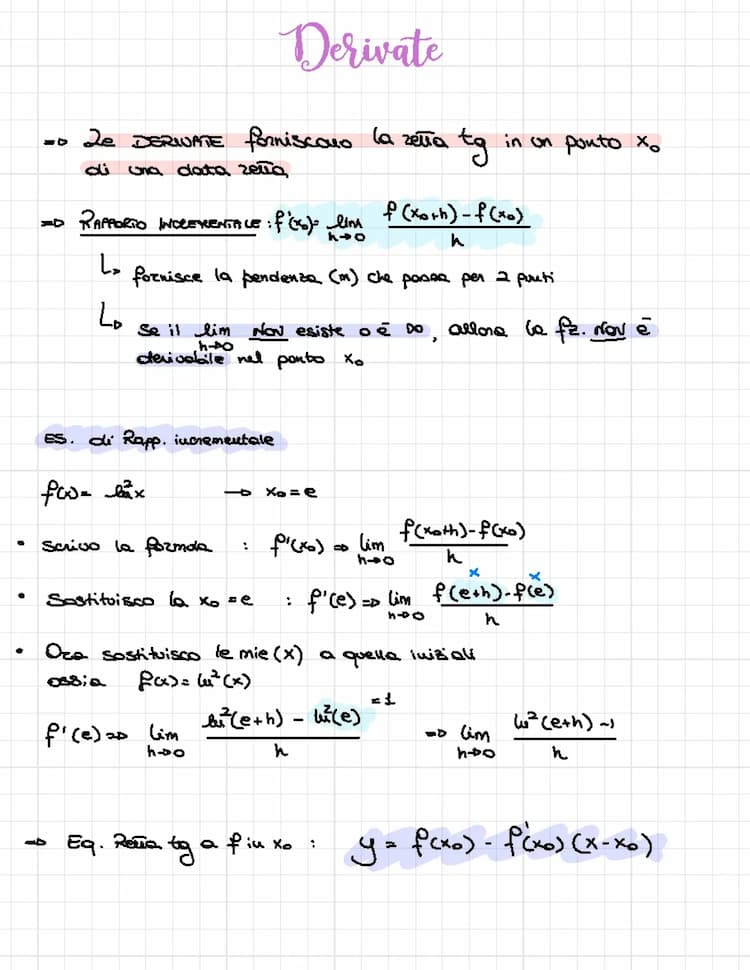 Derivate
=> Le DERIVATE forniscono la retta tg in un punto x₀
di una data retta
=> RAPPORTO INCREMENTALE : f'(x₀)= lim h→0 f(x₀+h)-f(x₀) / h
↳ fornisce la pendenza (m) che passa per 2 punti
↳ Se il lim h→0 NON esiste o è ∞, allora la fz. NON è
derivabile nel punto x₀
ES. di Rapp. incrementale
f(x)= ln²x → x₀=e
• scrivo la formula : f'(x₀) => lim h→0 f(x₀+h)-f(x₀) / h
• Sostituisco la x₀=e : f'(e) => lim h→0 f(e+h)-f(e) / h
x x
• Ora sostituisco le mie (x) a quella iniziali
ossia f(x)= ln²(x)
f'(e) => lim h→0 ln²(e+h) - ln²(e) / h =1 => lim h→0 ln²(e+h) -1 / h
=> Eq. Retta tg a f in x₀ : y = f(x₀) - f'(x₀) (x-x₀)